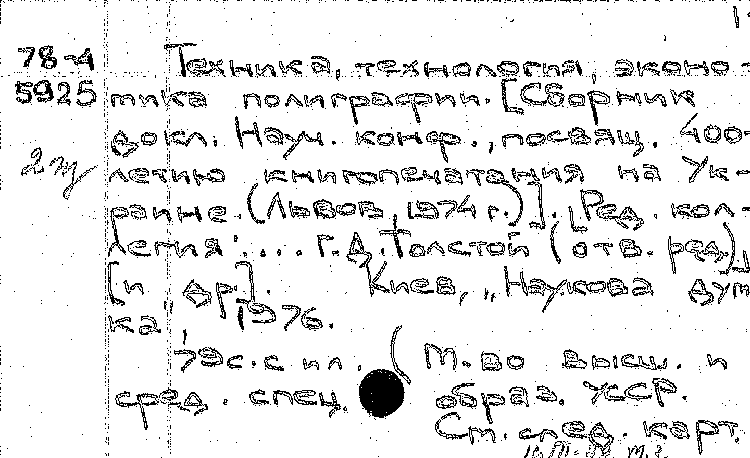 78-4
5925
2
Техника, технология, эконо-
мика полиграфии. [Сборник
докл. Науч. конф., посвящ. 400-
летию книгопечатания на Ук-
раине. (Львов, 1974 г.)]. [Ред. кол-
легия: ... Г. Д. Толстой (отв. ред.)
[и др.]. Киев, „Наукова дум
ка", 1976.
79с. с ил. (М-во высш. и
сред. спец. образ. УССР.
См. след. карт.